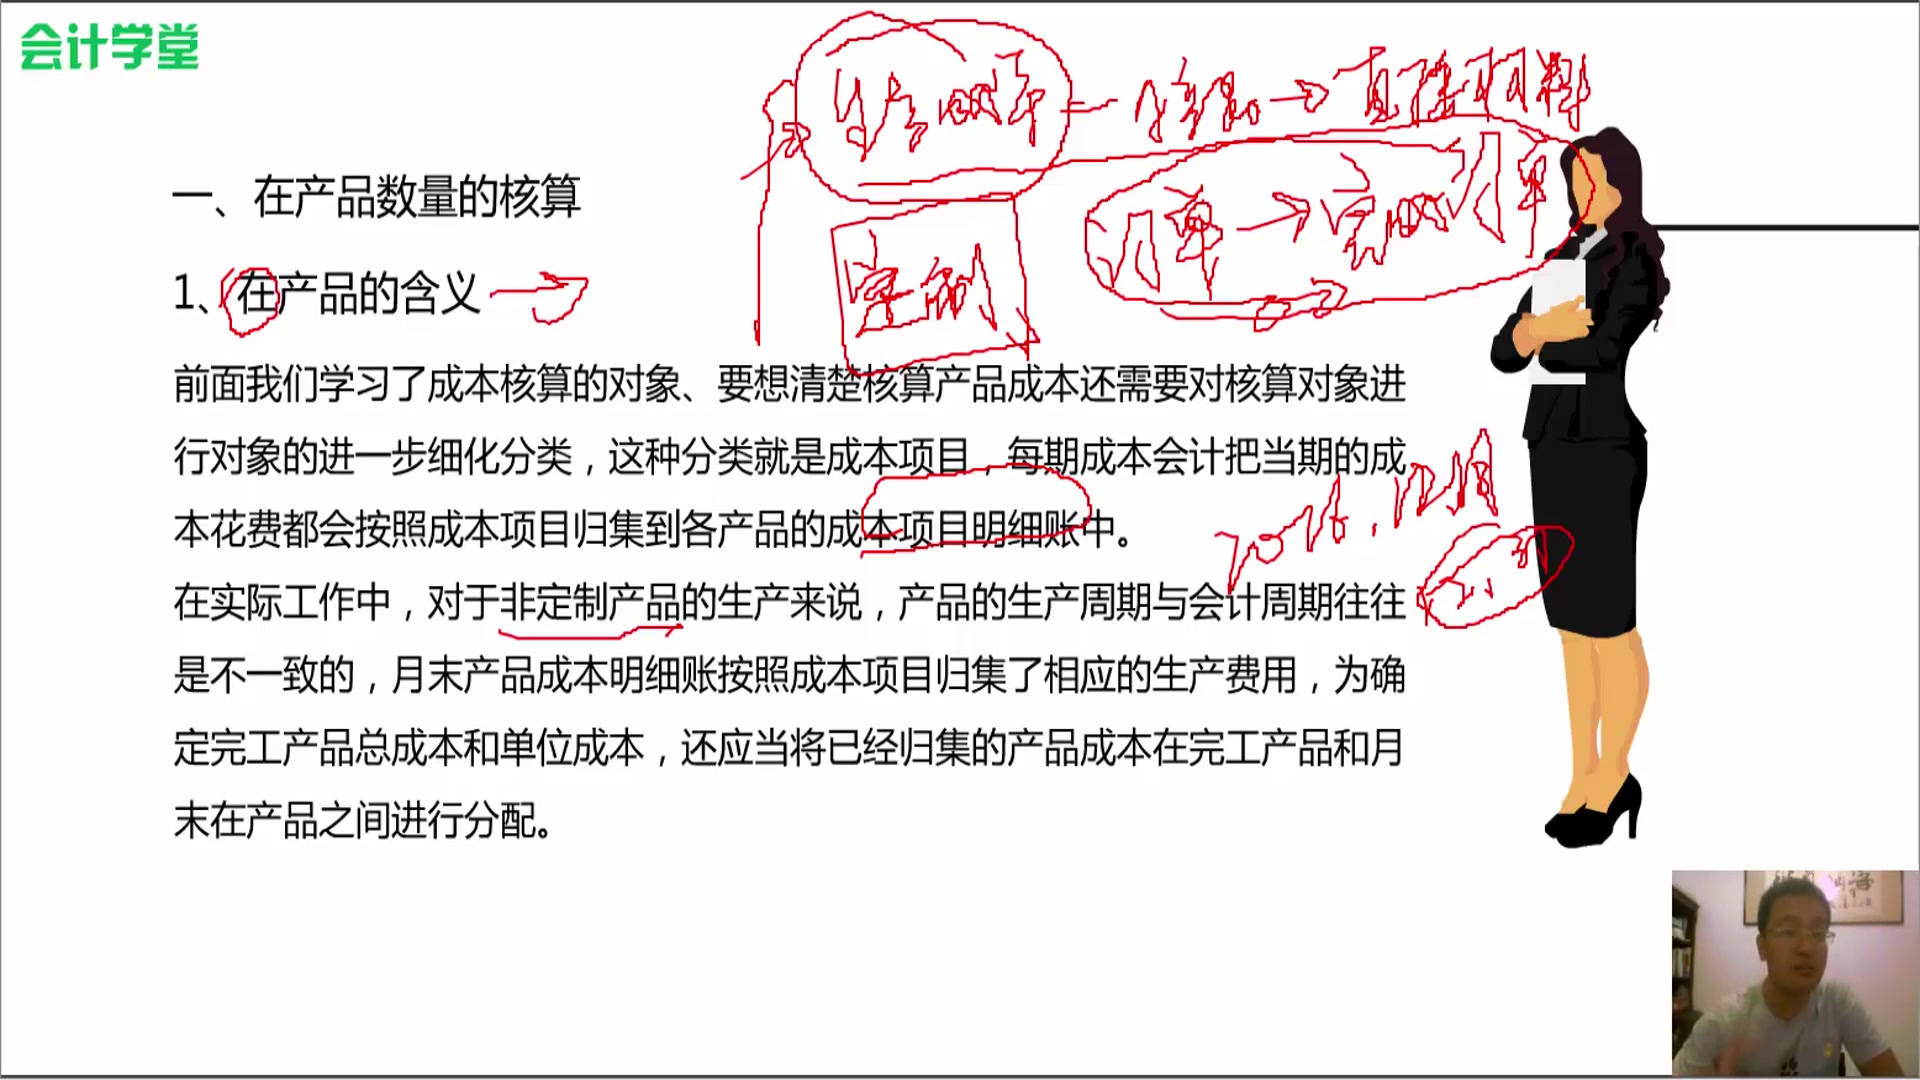 会计学堂
生产成本 — 明细 → 直接材料
订单 → 完成订单
定制
一、在产品数量的核算
1、在产品的含义
前面我们学习了成本核算的对象、要想清楚核算产品成本还需要对核算对象进
行对象的进一步细化分类，这种分类就是成本项目，每期成本会计把当期的成
本花费都会按照成本项目归集到各产品的成本项目明细账中。
2016.12月
在实际工作中，对于非定制产品的生产来说，产品的生产周期与会计周期往往
是不一致的，月末产品成本明细账按照成本项目归集了相应的生产费用，为确
定完工产品总成本和单位成本，还应当将已经归集的产品成本在完工产品和月
末在产品之间进行分配。